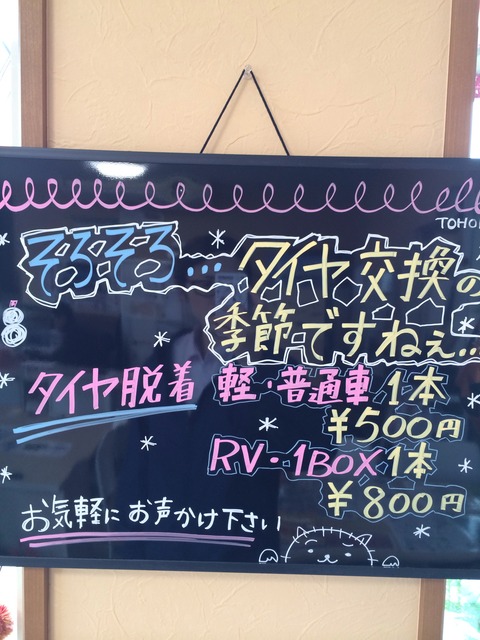 そろそろ… タイヤ交換の
季節ですねぇ…
タイヤ脱着 軽・普通車 1本
¥500円
RV・1BOX 1本
¥800円
お気軽に お声かけ下さい